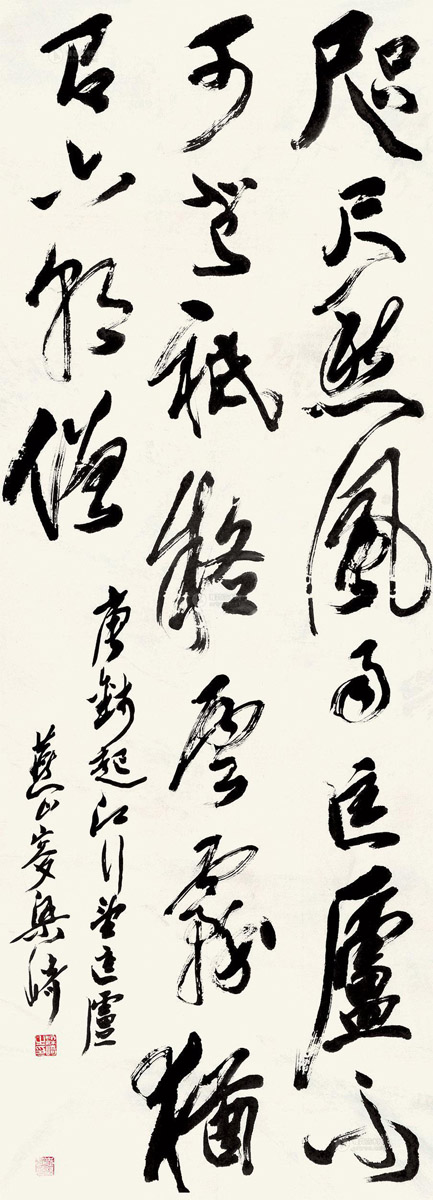 咫尺愁風雨匡廬不
可登祗疑雲霧猶
有六朝僧
唐錢起江行望匡廬
燕山